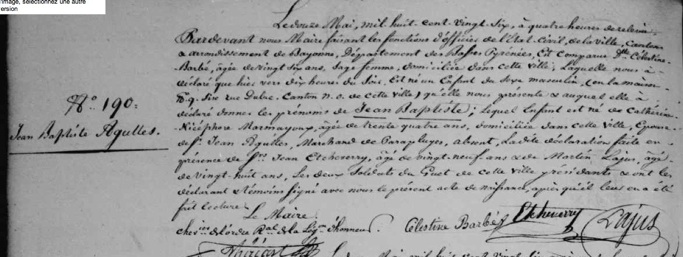 l'image, sélectionnez une autre
version
Le douze Mai, mil huit cent vingt six, à quatre heures de relevée
Pardevant nous Maire faisant les fonctions d'officier de l'Etat Civil de la Ville, Canton
& arrondissement de Bayonne, Département des Basses Pyrénées, Est Comparue Célestine
Barbé, agée de vingt six ans, sage femme, domiciliée dans cette ville, Laquelle nous a
déclaré que hier vers dix heures du soir, Est né un Enfant du Sexe masculin, (en la maison
Sise rue Canton n.o. de cette ville) qu'elle nous présente & auquel elle a
déclaré donner les prénoms de Jean Baptiste; lequel Enfant est né de Catherine
Nicéphore Marmayouy, agée de trente quatre ans, domiciliée dans cette ville, Epouse
de Jean Agulles, Marchand de Parapluyes, absent, La dite déclaration faite en
présence de Jean Etcheverry, agé de vingt-neuf ans & de Martin Lajus, agé
de vingt-huit ans, Les deux Soldats du Guet de cette ville & ont les
déclarant & témoins signé avec nous le présent acte de naissance, après qu'il leur en a été
fait lecture.
N.o 190.
Jean Baptiste Agulles.
Le Maire
de l'ordre R.al de la Lég.on d'honneur
Célestine Barbé
Etcheverry
Lajus